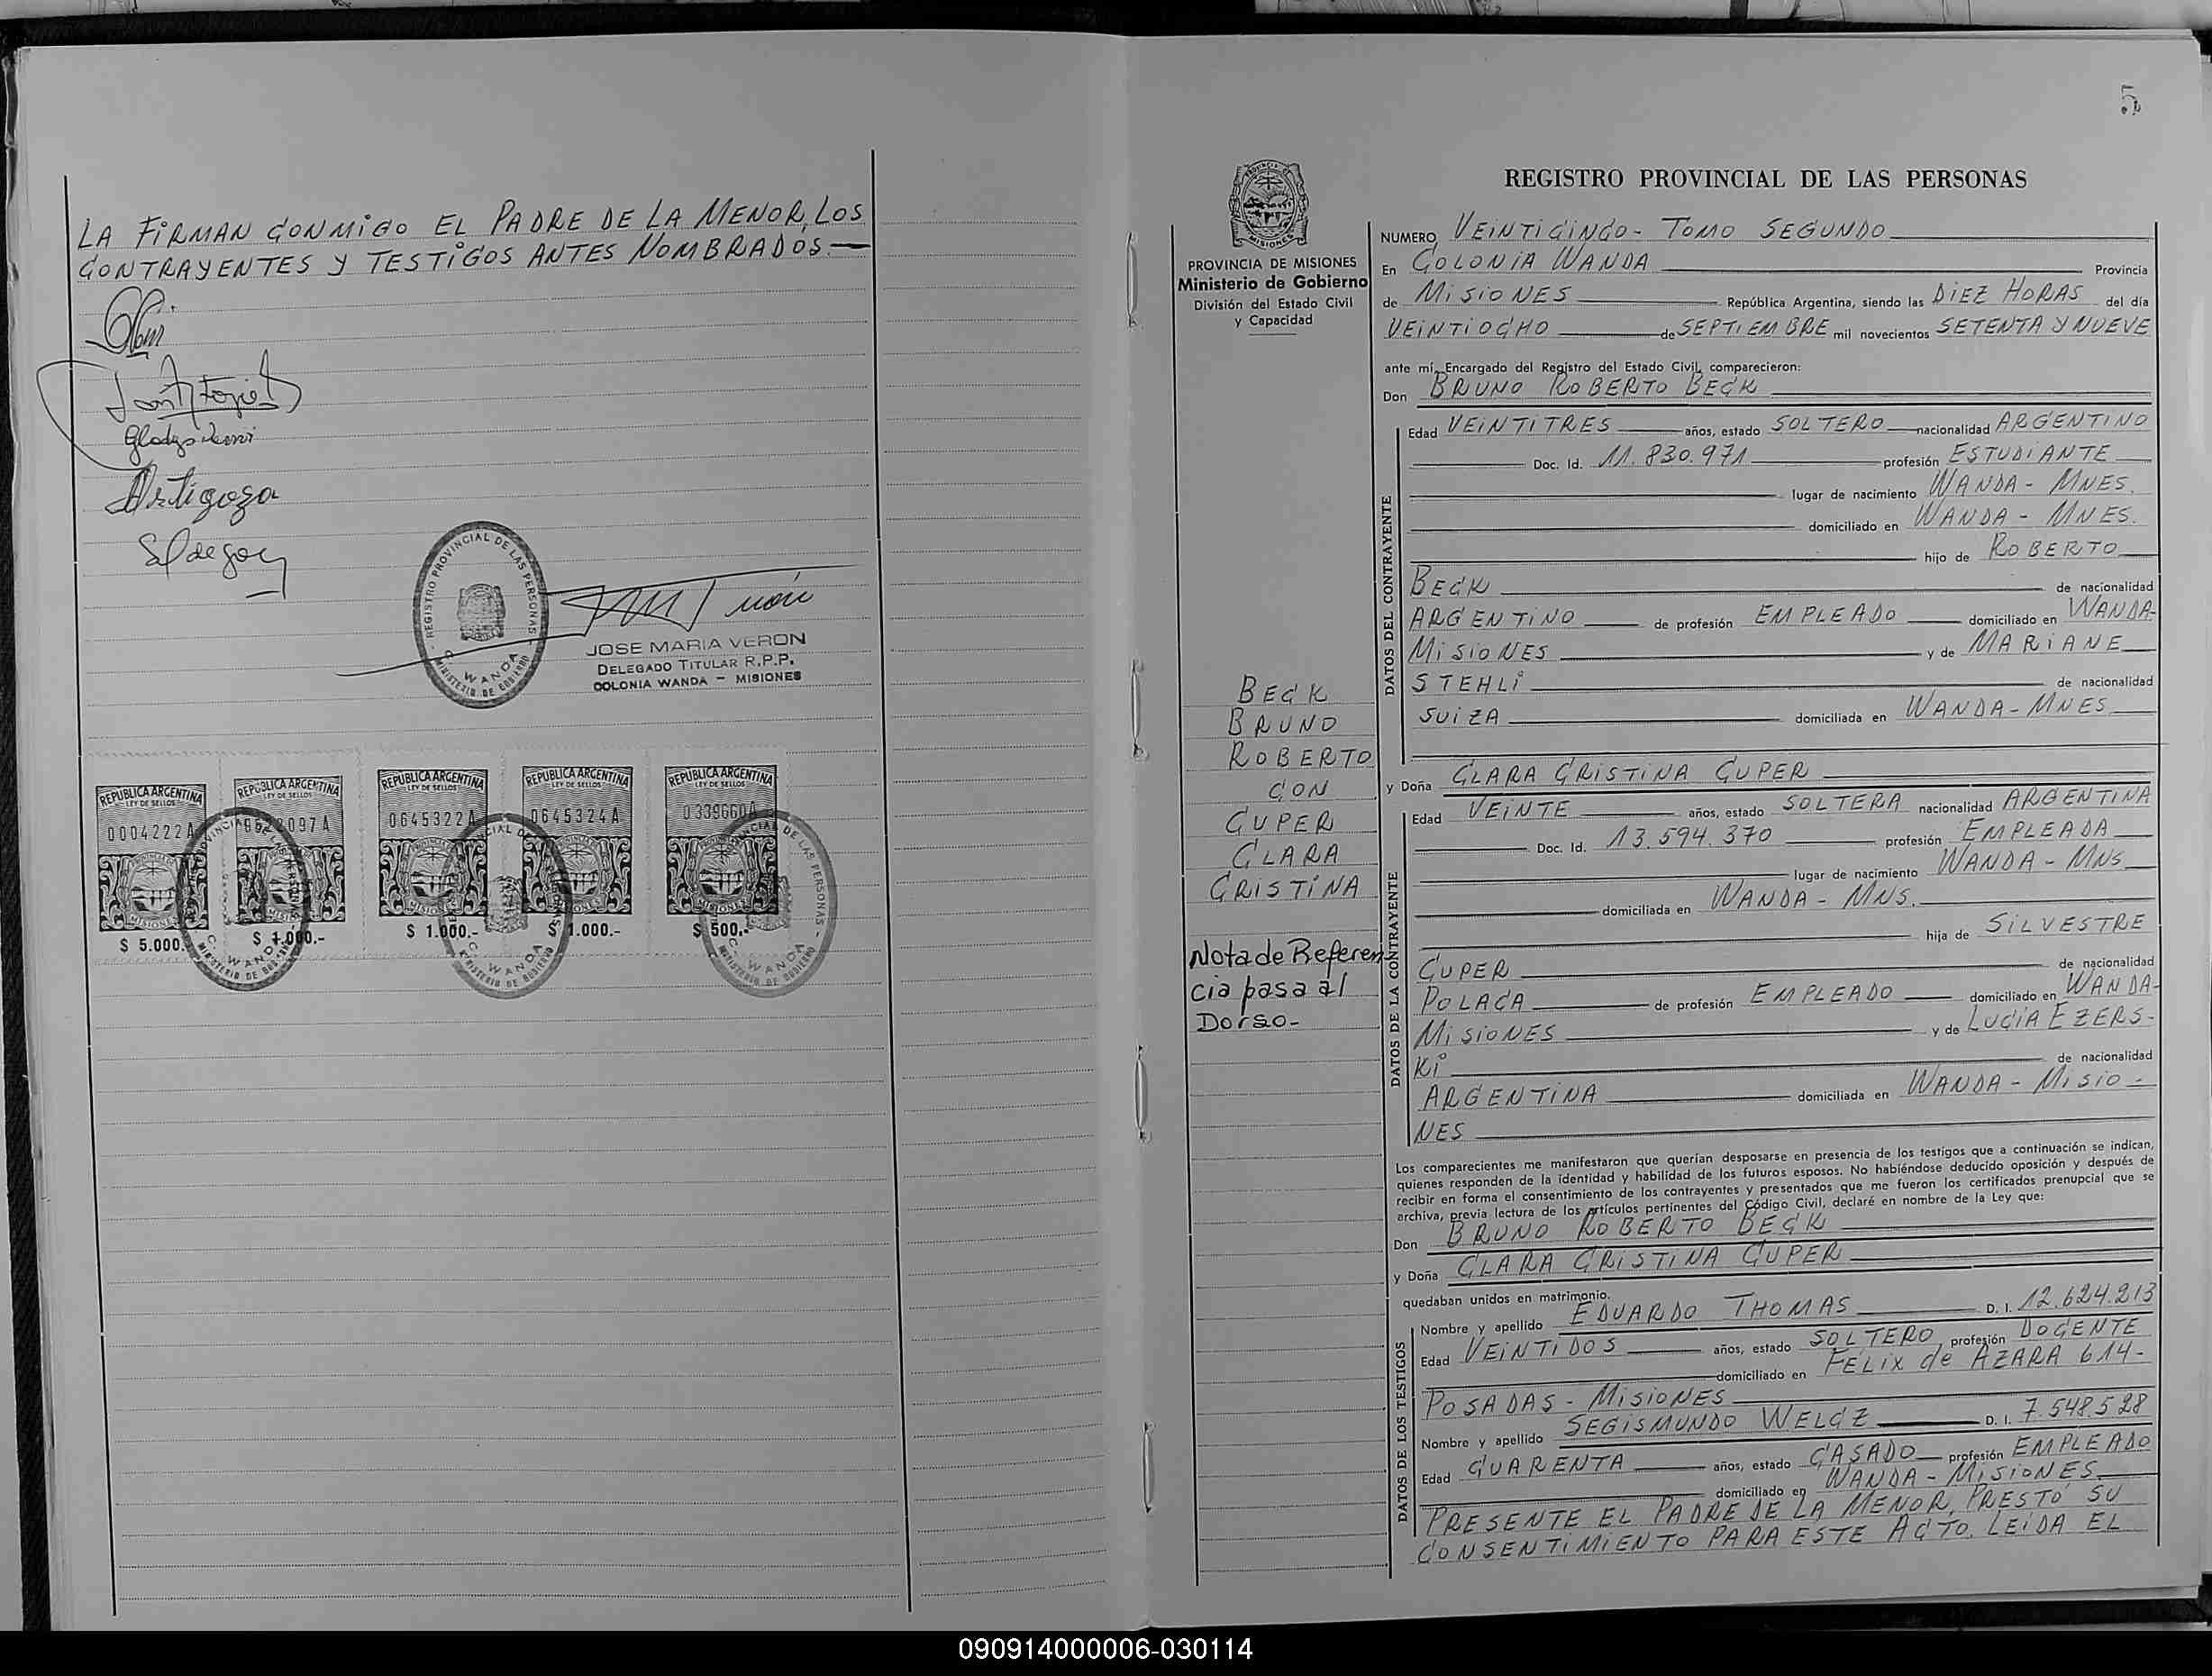 LA FIRMAN CONMIGO EL PADRE DE LA MENOR, LOS
CONTRAYENTES Y TESTIGOS ANTES NOMBRADOS.—
Gladys
Artigoza
REGISTRO PROVINCIAL DE LAS PERSONAS
C. WANDA
MINISTERIO DE GOBIERNO
JOSE MARIA VERON
DELEGADO TITULAR R.P.P.
COLONIA WANDA - MISIONES
REPUBLICA ARGENTINA
LEY DE SELLOS
0004222A
MISIONES
$ 5.000.-
REPUBLICA ARGENTINA
LEY DE SELLOS
097A
MISIONES
$ 1.000.-
REPUBLICA ARGENTINA
LEY DE SELLOS
0645322A
MISIONES
$ 1.000.-
REPUBLICA ARGENTINA
LEY DE SELLOS
0645324A
MISIONES
$ 1.000.-
REPUBLICA ARGENTINA
LEY DE SELLOS
0339660A
MISIONES
$ 500.-
5
MISIONES
PROVINCIA DE MISIONES
Ministerio de Gobierno
División del Estado Civil
y Capacidad
BECK
BRUNO
ROBERTO
CON
CUPER
CLARA
CRISTINA
Nota de Referen
cia pasa al
Dorso-
REGISTRO PROVINCIAL DE LAS PERSONAS
NUMERO VEINTICINCO - TOMO SEGUNDO
En COLONIA WANDA Provincia
de MISIONES República Argentina, siendo las DIEZ HORAS del día
VEINTIOCHO de SEPTIEMBRE mil novecientos SETENTA Y NUEVE
ante mí, Encargado del Registro del Estado Civil, comparecieron:
Don BRUNO ROBERTO BECK
DATOS DEL CONTRAYENTE
Edad VEINTITRES años, estado SOLTERO nacionalidad ARGENTINO
Doc. Id. 11.830.971 profesión ESTUDIANTE
lugar de nacimiento WANDA - MNES.
domiciliado en WANDA - MNES.
hijo de ROBERTO
BECK de nacionalidad
ARGENTINO de profesión EMPLEADO domiciliado en WANDA-
MISIONES y de MARIANE
STEHLI de nacionalidad
SUIZA domiciliada en WANDA-MNES
y Doña CLARA CRISTINA CUPER
DATOS DE LA CONTRAYENTE
Edad VEINTE años, estado SOLTERA nacionalidad ARGENTINA
Doc. Id. 13.594.370 profesión EMPLEADA
lugar de nacimiento WANDA - MNS
domiciliada en WANDA - MNS.
hija de SILVESTRE
CUPER de nacionalidad
POLACA de profesión EMPLEADO domiciliado en WANDA-
MISIONES y de LUCIA EZERS-
KI de nacionalidad
ARGENTINA domiciliada en WANDA - MISIO -
NES
Los comparecientes me manifestaron que querían desposarse en presencia de los testigos que a continuación se indican,
quienes responden de la identidad y habilidad de los futuros esposos. No habiéndose deducido oposición y después de
recibir en forma el consentimiento de los contrayentes y presentados que me fueron los certificados prenupcial que se
archiva, previa lectura de los artículos pertinentes del Código Civil, declaré en nombre de la Ley que:
Don BRUNO ROBERTO BECK
y Doña CLARA CRISTINA CUPER
quedaban unidos en matrimonio.
DATOS DE LOS TESTIGOS
Nombre y apellido EDUARDO THOMAS D. I. 12.624.213
Edad VEINTIDOS años, estado SOLTERO profesión DOCENTE
domiciliado en FELIX de AZARA 614-
POSADAS - MISIONES
Nombre y apellido SEGISMUNDO WELCZ D. I. 7.548.528
Edad CUARENTA años, estado CASADO profesión EMPLEADO
domiciliado en WANDA - MISIONES
PRESENTE EL PADRE DE LA MENOR, PRESTÓ SU
CONSENTIMIENTO PARA ESTE ACTO. LEIDA EL
090914000006-030114